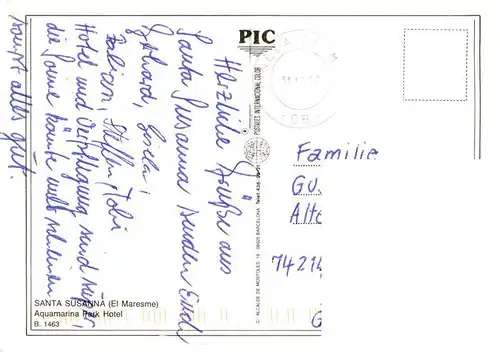 Herzliche Grüße aus
Santa Susanna senden Euch
Gerhard, Gisela,
Fabian, Steffen, Tobi
Hotel und Verpflegung sind super,
die Sonne könnte mehr scheinen
sonst alles gut.
PIC
POSTALES INTERNACIONAL COLOR
C/. ALCALDE DE MOSTOLES, 19 - 08025 BARCELONA
Familie
Gu
Alte
74214
SANTA SUSANNA (El Maresme)
Aquamarina Park Hotel
B. 1463